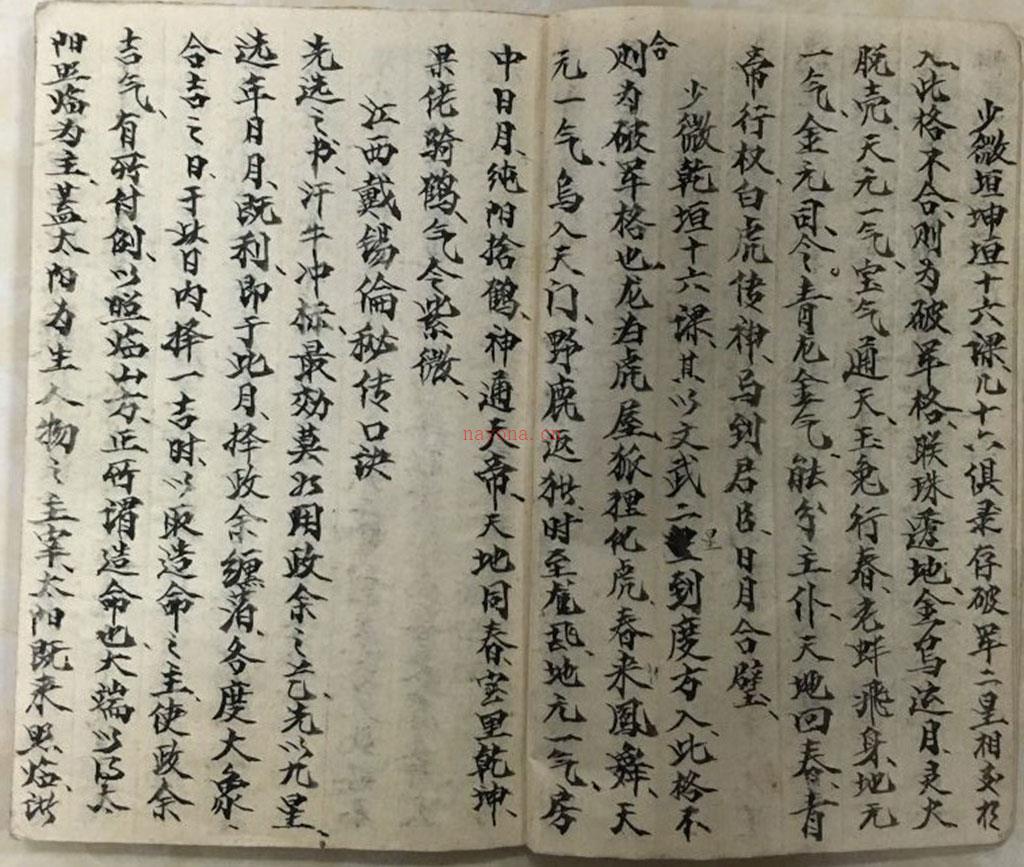 少微垣坤垣十六课凡十六俱录存破军二星相交於
入此格不合则为破军格联珠透地金乌运月灵犬
脱壳天元一气宝气通天玉兔行春老蚌飞身地元
一气金元司令。青龙金气能分主仆天地回春青
帝行权白虎传神马到君臣日月合璧
少微乾垣十六课其以文武二星到度方入此格不
合则为破军格也龙为虎屋狐狸化虎春来凤舞天
元一气乌入天门野鹿返 时至 地元一气房
中日月纯阳捨鹤神通大帝天地同春室里乾坤
果佬骑鹤气令紫微
江西戴锡伦秘传口诀
先选之书汗牛冲栋最効莫如用政余之艺先以九星
选年日月既利即于此月择政余缠宿各度大象
合吉之日于此日内择一吉时以取造命之主使政余
吉气有所付倒以照临山方正所谓造命也大端以得太
阳照临为主盖太阳为生人物之主宰太阳既来照临诸
nayona.cn